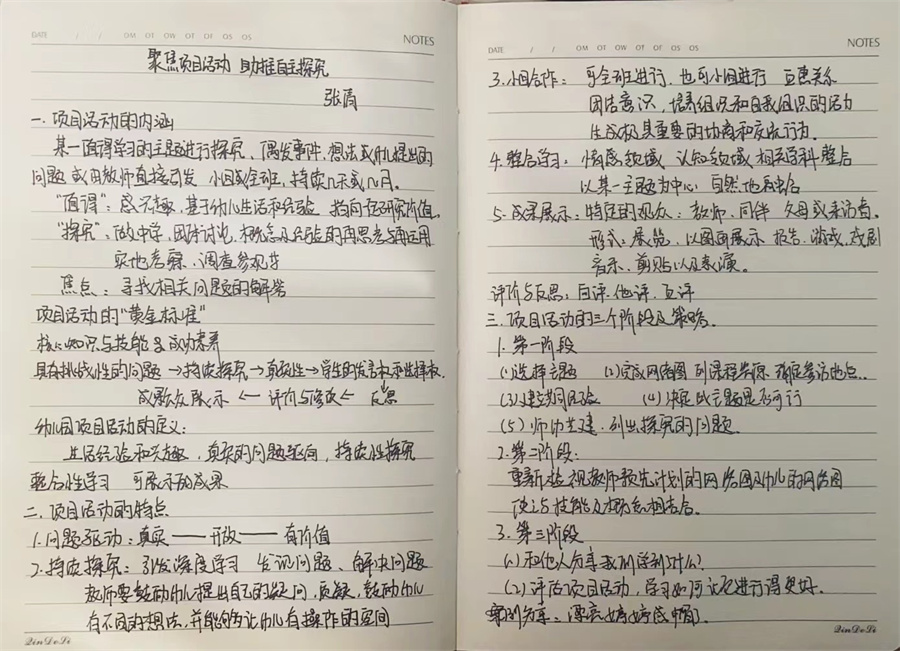 DATE / / OM OT OW OT OF OS OS NOTES
聚焦项目活动 助推自主探究
张清
一、项目活动的内涵
某一值得学习的主题进行探究，偶发事件、想法或幼儿提出的
问题 或由教师直接引发 小组或全班，持续几天或几月。
"值得"：感兴趣，基于幼儿生活和经验 指向有研究价值。
"探究"：做中学，团体讨论，概念及经验的再思考与再运用
实地考察、调查参观等
焦点：寻找相关问题的解答
项目活动的"黄金标准"
核心知识与技能 成功素养
具有挑战性的问题 → 持续探究 → 真实性 → 学生的发言权和选择权
成果公众展示 ← 评价与修改 ← 反思
幼儿园项目活动的定义：
生活经验和兴趣，真实的问题驱向，持续性探究
整合性学习 可展示的成果
二、项目活动的特点
1.问题驱动：真实 — 开放 — 有价值
2.持续探究：引发深度学习 发现问题、解决问题
教师要鼓励幼儿提出自己的疑问，质疑，鼓励幼儿
有不同的想法，并能够让幼儿有操作的空间
QinDeLi
DATE / / OM OT OW OT OF OS OS NOTES
3.小组合作：可全班进行，也可小组进行 互惠关系
团结意识，培养组织和自我组织的活力
生成极具重要的协商和反应行为。
4.整合学习：情感领域 认知领域 相关学科整合
以某一主题为中心 自然地融合
5.成果展示：特定的观众：教师、同伴 父母或来访者。
形式：展览，以图画展示 报告、游戏、戏剧
音乐、剪贴以及表演。
评价与反思：自评、他评、互评
三、项目活动的三个阶段及策略。
1.第一阶段
(1)选择主题 (2)完成网络图 列课程资源 确定参访地点.
(3)建共同经验 (4)决定此主题是否可行
(5)师幼共建、列出探究的问题
2.第二阶段：
重新检视教师预先计划的网络图及幼儿的网络图
使之与技能及概念相结合。
3.第三阶段
(1)和他人分享我们学到什么？
(2)评估项目活动，学习如何让它进行得更好.
案例分享：漂亮
QinDeLi